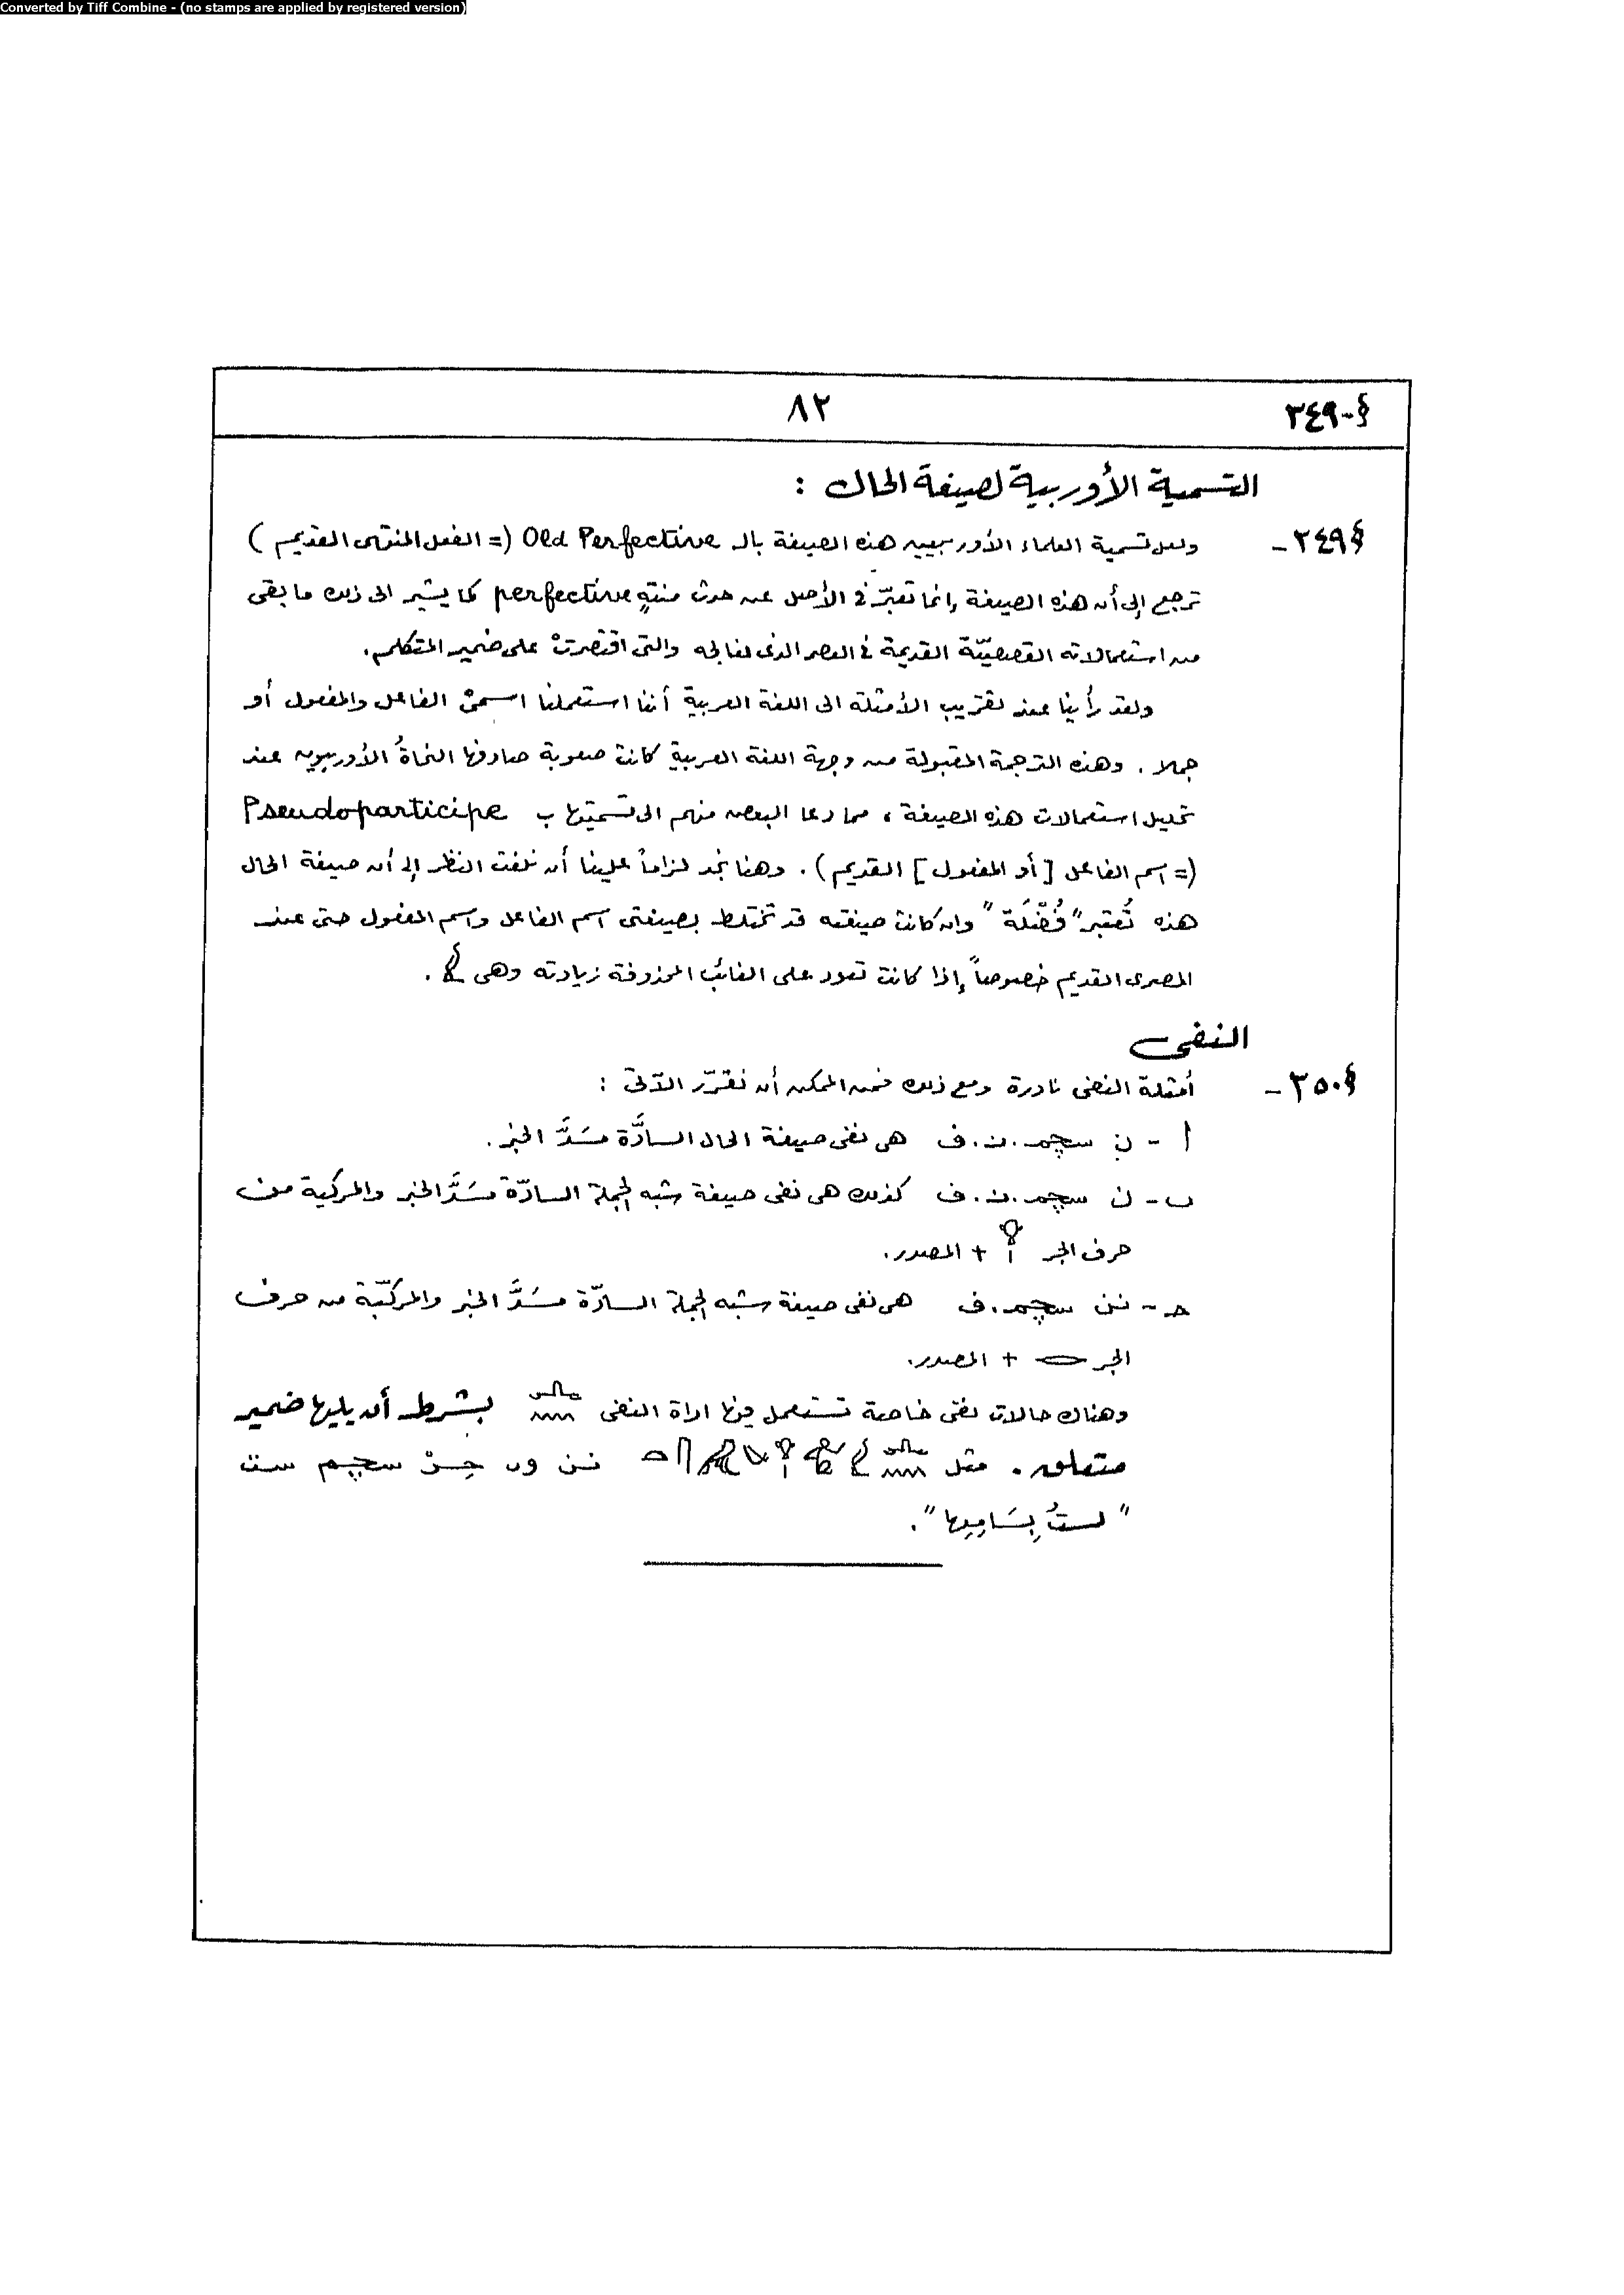 Converted by Tiff Combine - (no stamps are applied by registered version)
§-٣٤٩ ٨٢
التسمية الأوربية لصيغة الحال :
§٣٤٩- ولعل تسمية العلماء الأوربيين هذه الصيغة بالـ Old Perfective (= الفعل المنتهى القديم )
ترجع إلى أن هذه الصيغة إنما تعبّر فى الأصل عن حدث منتهٍ perfective كما يشير الى ذلك ما بقى
من استعمالاته القصصيّة القديمة فى العصر الذى نعالجه والتى اقتصرتْ على ضمير المتكلم.
ولقد رأينا عند تقريب الأمثلة الى اللغة العربية أننا استعملنا اسمىْ الفاعل والمفعول أو
جملا . وهذه الترجمة المقبولة من وجهة اللغة العربية كانت صعوبة صادفها النحاةُ الأوربيون عند
تحليل استعمالات هذه الصيغة ، مما دعا البعض منهم الى تسميتها بـ Pseudoparticipe
(= اسم الفاعل [أو المفعول] القديم) . وهنا نجد لزاماً علينا أن نلفت النظر إلى أن صيغة الحال
هذه تُعتبر "فُضْلَة" وإن كانت صيغته قد تختلط بصيغتى اسم الفاعل واسم المفعول حتى عند
المصرى القديم خصوصاً إذا كانت تعود على الغائب المحذوفة زيادته وهى .
النفى
§٣٥٠- أمثلة النفى نادرة ومع ذلك فمن الممكن أن نقرّر الآتى :
أ - ن سچم.ن.ف هى نفى صيغة الحال السادَّة مسَدَّ الخبر .
ب - ن سچم.ن.ف كذلك هى نفى صيغة شبه الجملة السادّة مسَدَّ الخبر والمركبة من
حرف الجر + المصدر.
حـ - نن سچم.ف هى نفى صيغة شبه الجملة السادّة مسَدَّ الخبر والمركّبة من حرف
الجر + المصدر.
وهناك حالات نفى خاصة تستعمل فيها اداة النفى بشرط أن يليها ضمير
متعلق . مثل نـن وى حِـرْ سچم ست
"لستُ بِسَامِعِها" .